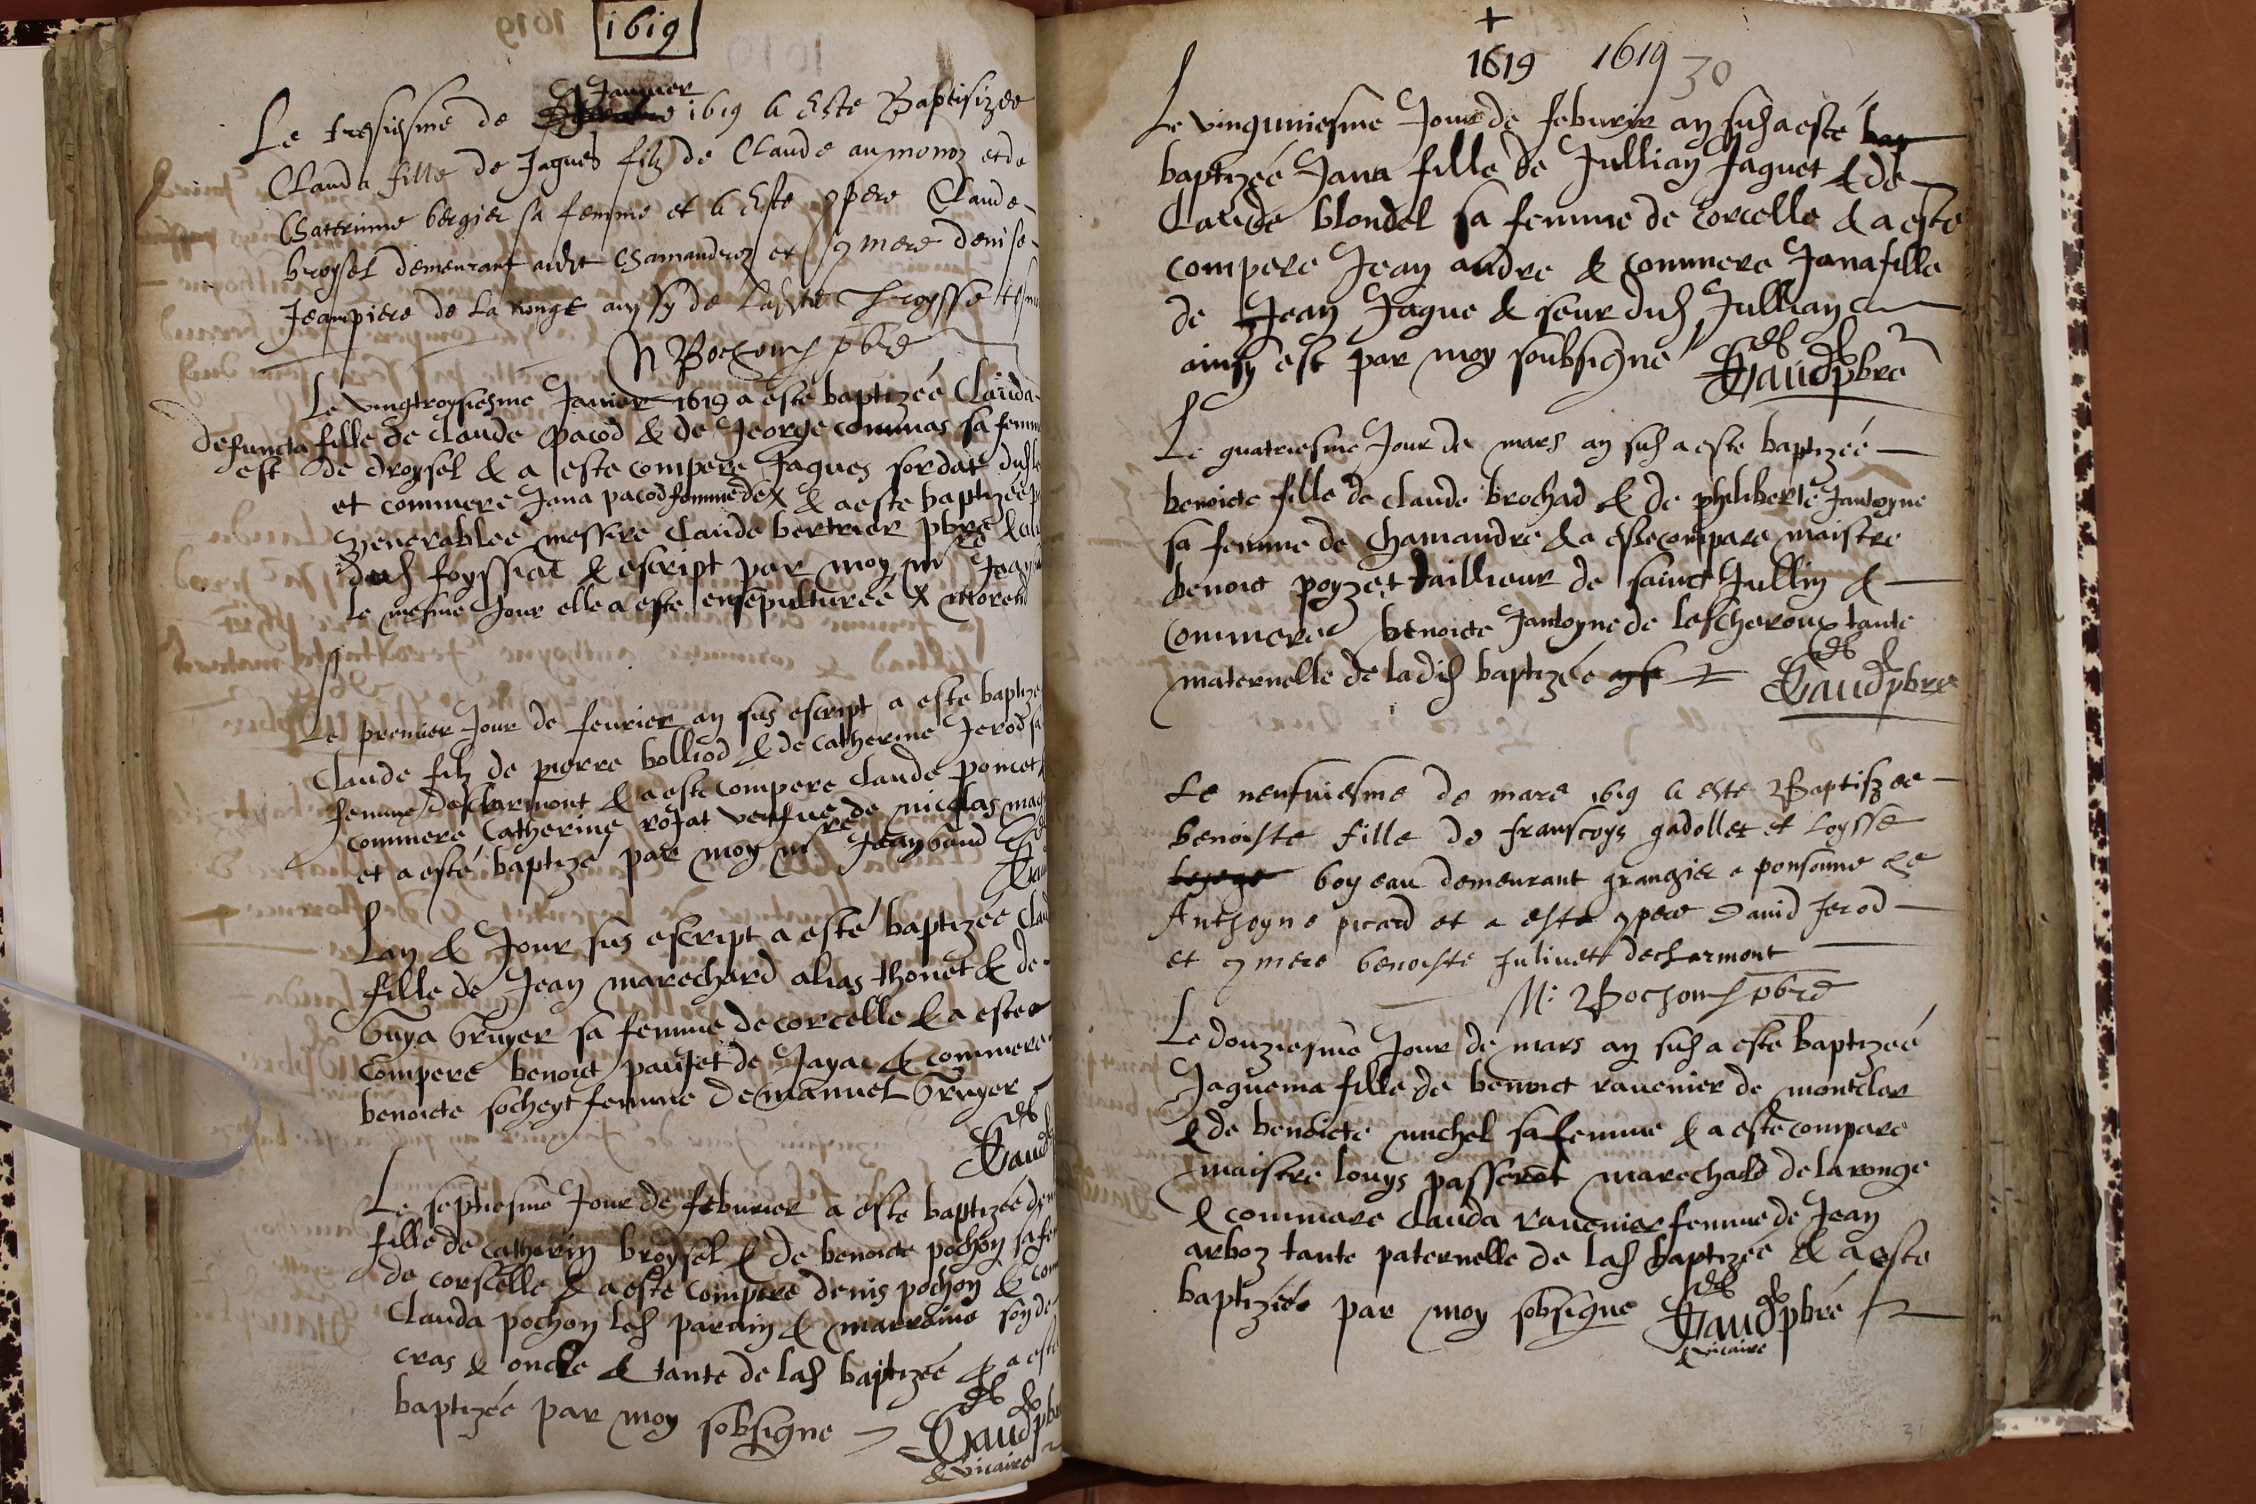 1619
Le tresiesme de Januier 1619 a este Baptisizee
Clauda fille de Jaques filz de Claude aymonoz et de
Catterinne bergier sa femme et a este 9pere Claude
broysel demeurant audit Chamandroz et 9mere denise
Jeampiere de la ronge aussy de
Bochom pbre
Le vingtroysiesme Januier 1619 a este baptizeé Clauda
defuncta fille de claude pacod & de George commas sa femme
est de droysel & a este compere Jaques sordat dud
et commere Jana pacod femme de & a este baptizeé
venerablee messire Claude bertrier pbre
dud foyssiat & escript par moy mre Jean
le mesme Jour elle a este ensepulturée
Le premier Jour de feurier an sus escript a este baptize
Claude filz de pierre bolliod & de catherine Jerod sa
femme de charmont & a este compere claude poncet
commere Catherine rojat vefue de nicolas
et a esté baptizé par moy mre Jean Gaud
Lan & Jour sus escript a esté baptizée
fille de Jean marechard alias thouet & de
Guya Gruyer sa femme de corcelle & a este
compere benoict paujet de Jayac & commere
benoicte socheyt femme de manuel Gruyer
Gaud
Le septiesme Jour de feburier a este baptizée
fille de catherin broysel & de benoicte pochon sa
de corscelle & a este compere denis pochon &
Clauda pochon lesd parain & marraine son de
cras & oncle & tante de lad baptizée & a este
baptizée par moy sobsigne
Gaud pbre
& vicaire
+
1619 1619 30
Le vinguniesme Jour de feburier an sud a esté bap
baptizeé Jana fille de Jullian Jaguet & de
Claude blondel sa femme de corcelle & a este
compere Jean andre & commere Jana fille
de Jean Jague & seur dud Jullian
ainsy est par moy soubsigne Gaud pbre
Le quatriesme Jour de mars an sud a este baptizeé
benoicte fille de claude brochad & de philiberte Jantoyne
sa femme de chamandre & a este compare maistre
benoict poyzet taillieur de sainct Jullin &
commere benoicte Jantoyne de lescheroux tante
maternelle de ladid baptizée
Gaud pbre
Le neufuiesme de mars 1619 a este Baptiszee
benoiste fille de franscoys gadollet et Loysse
boyeau demeurant grangier a ponsonne de
Anthoyne picard et a este 9pere Dauid Jerod
et 9mere benoiste Juliuett de charmont
M: Bochom pbre
Le douziesme Jour de mars an sud a este baptizeé
Jaguema fille de benoict rauenier de montclar
& de benoicte michel sa femme & a este compare
maistre louys passerot marechald de laronge
& commare Clauda rauenier femme de Jean
arboz tante paternelle de lad baptizeé & a este
baptizeé par moy sobsigne Gaud pbre
& vicaire
31